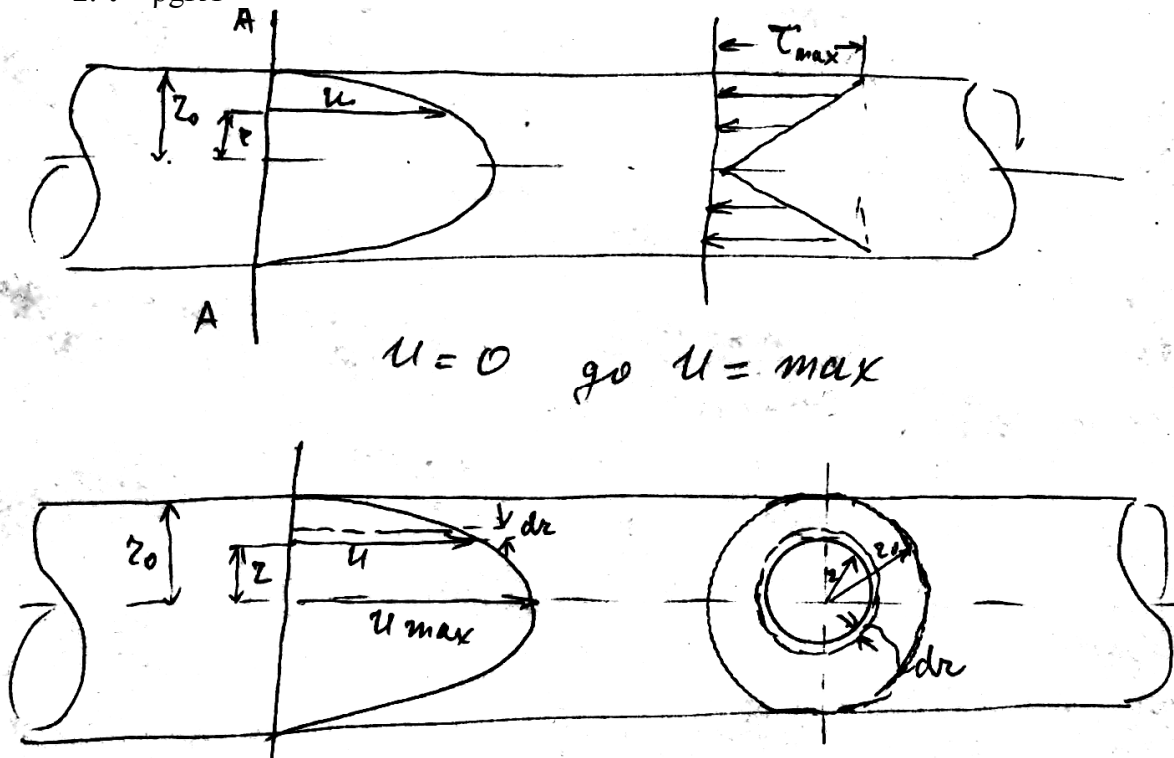 A
τmax
u
r₀
r
A
u = 0 до u = max
dr
r₀
r
u
u max
r
r₀
dr